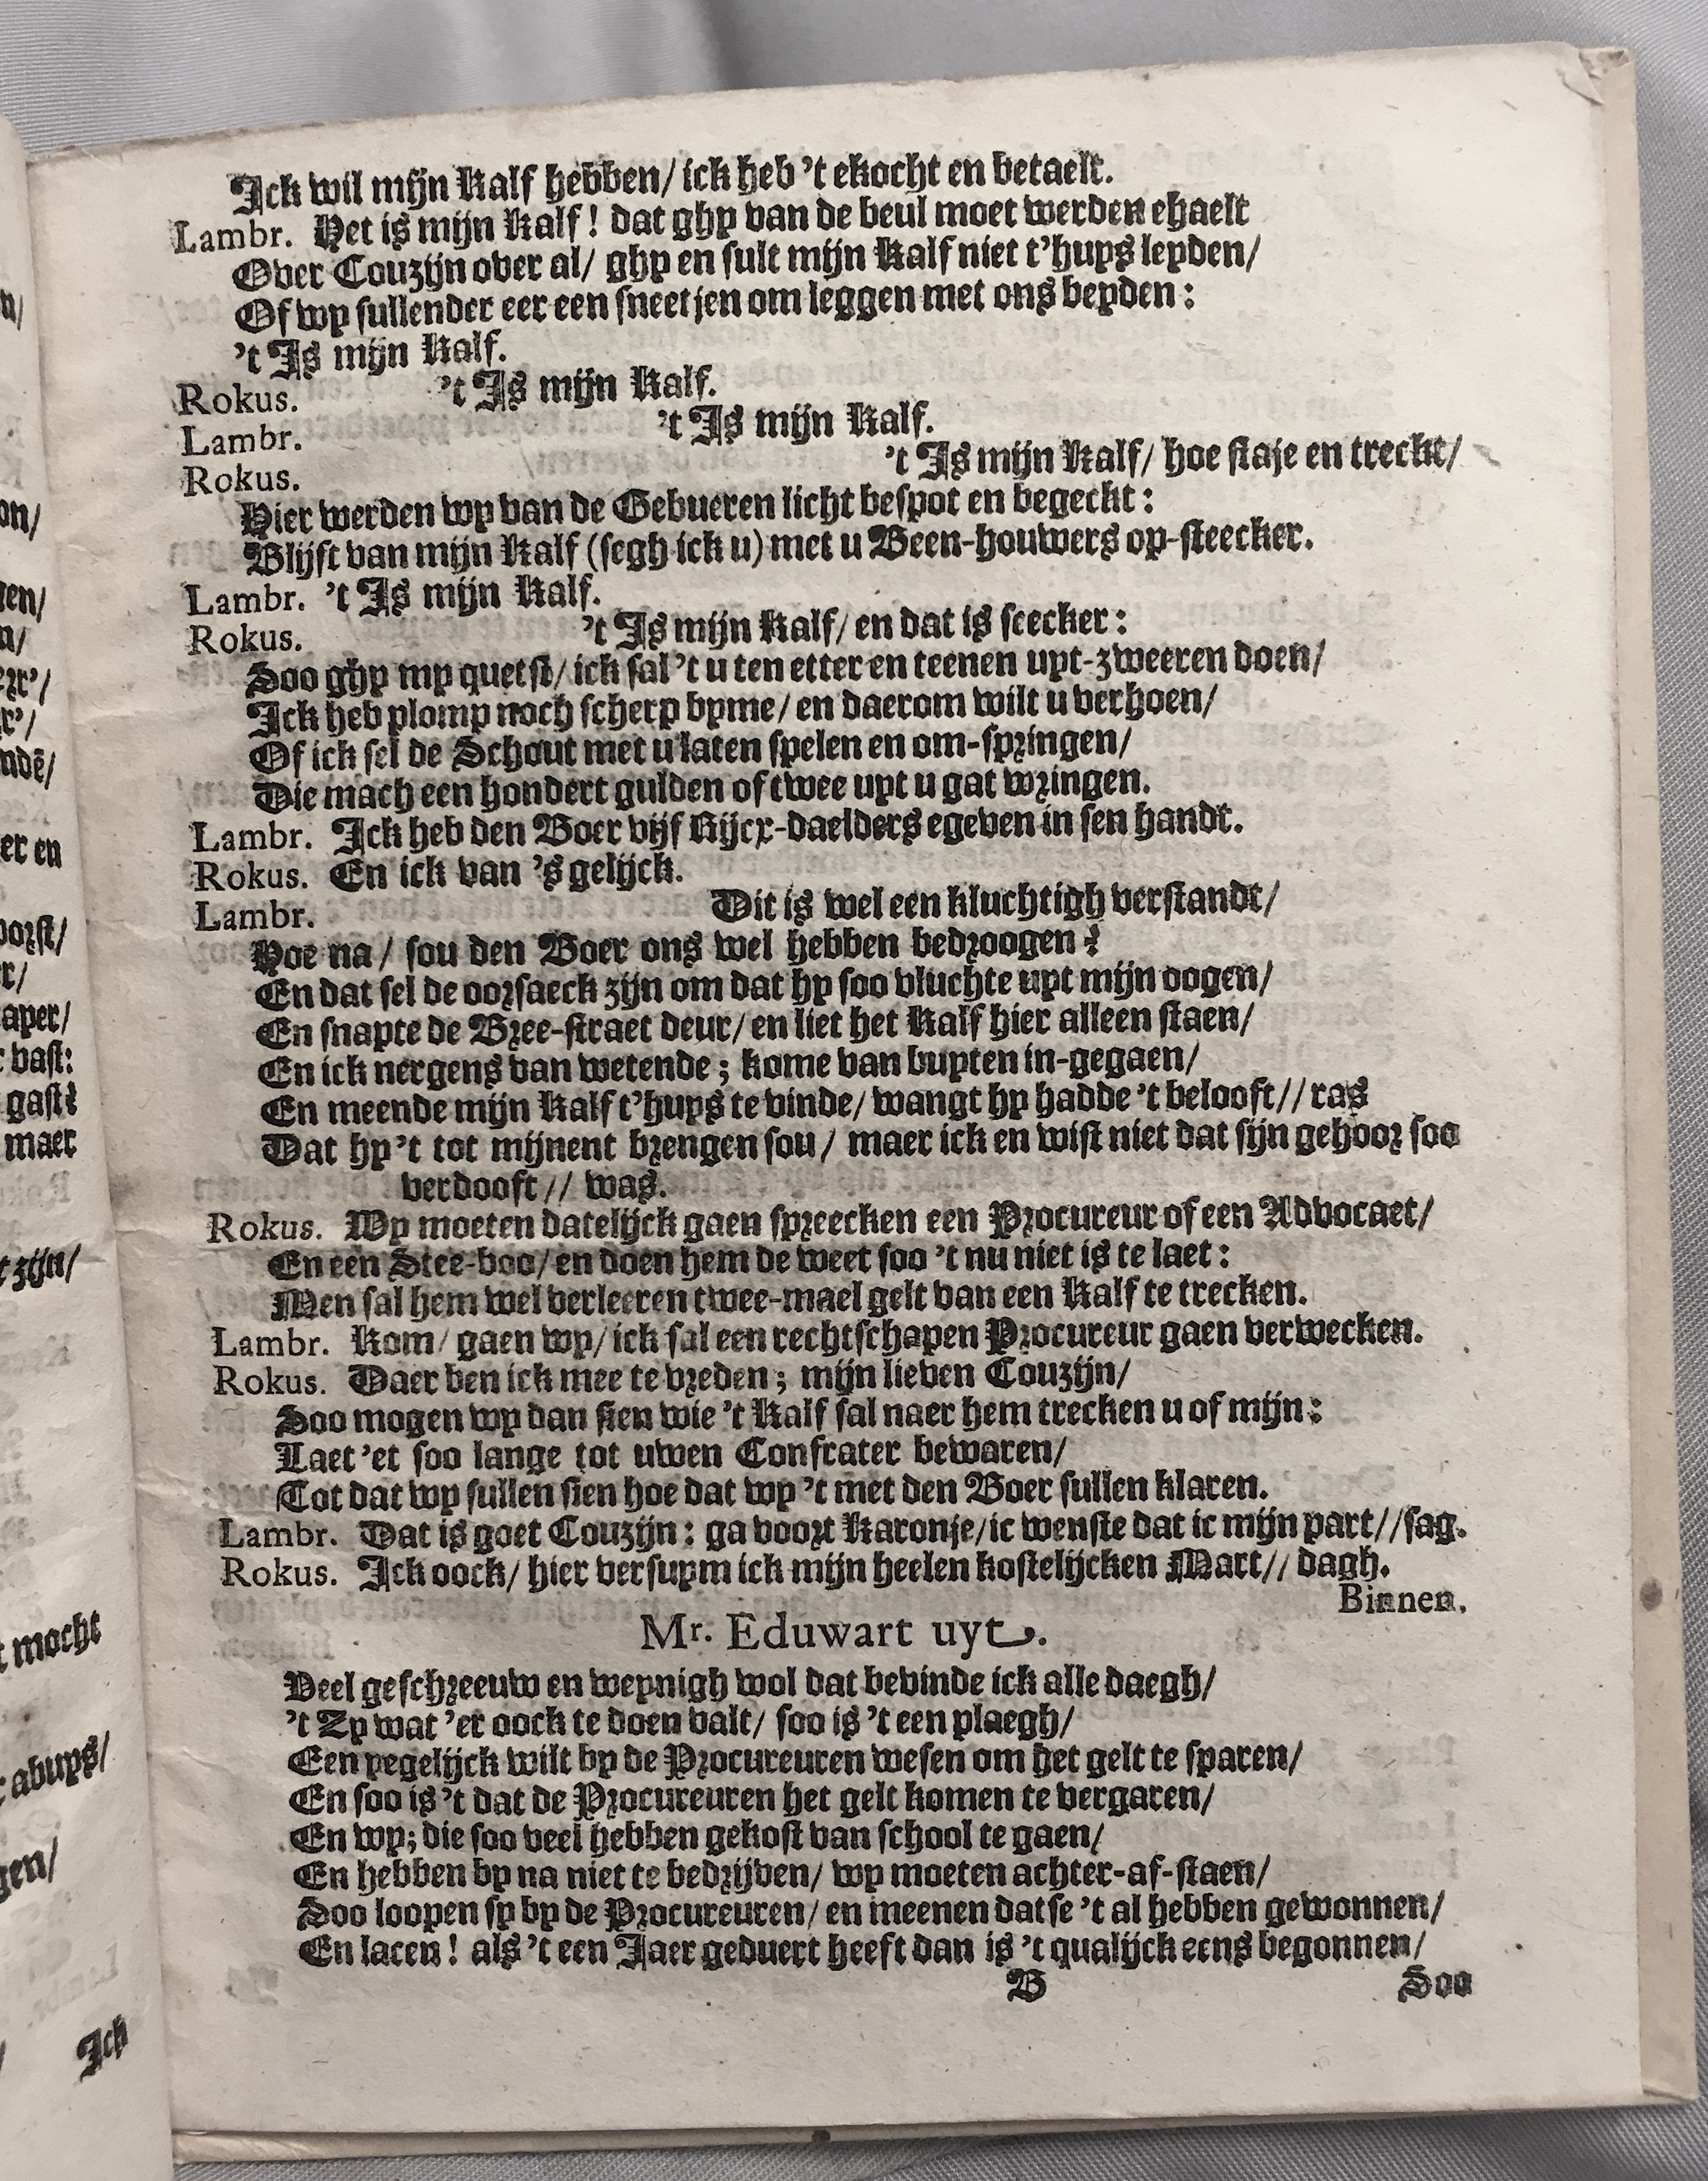 Ick wil mijn Kalf hebben/ ick heb 't ekocht en betaelt.
Lambr. Het is mijn Kalf! dat ghy van de beul moet werden ehaelt
Over Couzijn over al/ ghy en sult mijn Kalf niet t'huys leyden/
Of wy sullender eer een sneetjen om leggen met ons beyden:
't Is mijn Kalf.
Rokus. 't Is mijn Kalf.
Lambr. 't Is mijn Kalf.
Rokus. 't Is mijn Kalf/ hoe staje en treckt/
Hier werden wy van de Gebueren licht bespot en begeckt:
Blijft van mijn Kalf (segh ick u) met u Been-houwers op-steecker.
Lambr. 't Is mijn Kalf.
Rokus. 't Is mijn Kalf/ en dat is seecker:
Soo ghy my quetst/ ick sal 't u ten etter en teenen uyt-zweeren doen/
Ick heb plomp noch scherp byme/ en daerom wilt u verhoen/
Of ick sel de Schout met u laten spelen en om-springen/
Die mach een hondert gulden of twee uyt u gat wringen.
Lambr. Ick heb den Boer vijf Rijcx-daelders egeven in sen handt.
Rokus. En ick van 's gelijck.
Lambr. Dit is wel een kluchtigh verstandt/
Hoe na/ sou den Boer ons wel hebben bedroogen?
En dat sel de oorsaeck zijn om dat hy soo vluchte uyt mijn oogen/
En snapte de Bree-straet deur/ en liet het Kalf hier alleen staen/
En ick nergens van wetende; kome van buyten in-gegaen/
En meende mijn Kalf t'huys te vinde/ wangt hy hadde 't belooft// ras
Dat hy 't tot mijnent brengen sou/ maer ick en wist niet dat sijn gehoor soo
verdooft// was.
Rokus. Wy moeten datelijck gaen spreecken een Procureur of een Advocaet/
En een Stee-boo/ en doen hem de weet soo 't nu niet is te laet:
Men sal hem wel verleeren twee-mael gelt van een Kalf te trecken.
Lambr. Kom/ gaen wy/ ick sal een rechtschapen Procureur gaen verwecken.
Rokus. Daer ben ick mee te vreden; mijn lieven Couzijn/
Soo mogen wy dan sien wie 't Kalf sal naer hem trecken u of mijn:
Laet 'et soo lange tot uwen Confrater bewaren/
Tot dat wy sullen sien hoe dat wy 't met den Boer sullen klaren.
Lambr. Dat is goet Couzijn: ga voort Karonje/ ic wenste dat ic mijn part//sag.
Rokus. Ick oock/ hier versuym ick mijn heelen kostelijcken Mart// dagh.
Binnen.
Mr. Eduwart uyt.
Veel geschreeuw en weynigh wol dat bevinde ick alle daegh/
't Zy wat 'er oock te doen valt/ soo is 't een plaegh/
Een yegelijck wilt by de Procureuren wesen om het gelt te sparen/
En soo is 't dat de Procureuren het gelt komen te vergaren/
En wy; die soo veel hebben gekost van school te gaen/
En hebben by na niet te bedrijven/ wy moeten achter-af-staen/
Soo loopen sy by de Procureuren/ en meenen datse 't al hebben gewonnen/
En lacen! als 't een Jaer geduert heeft dan is 't qualijck eens begonnen/
B Soo